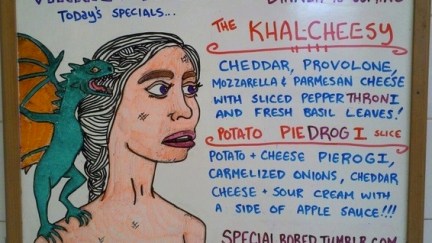 TODAY'S SPECIALS...
THE KHAL-CHEESY
CHEDDAR, PROVOLONE,
MOZZARELLA & PARMESAN CHEESE
WITH SLICED PEPPERTHRONI
AND FRESH BASIL LEAVES!
POTATO PIEDROGI SLICE
POTATO + CHEESE PIEROGI,
CARMELIZED ONIONS, CHEDDAR
CHEESE + SOUR CREAM WITH
A SIDE OF APPLE SAUCE!!!
SPECIALBORED.TUMBLR.COM